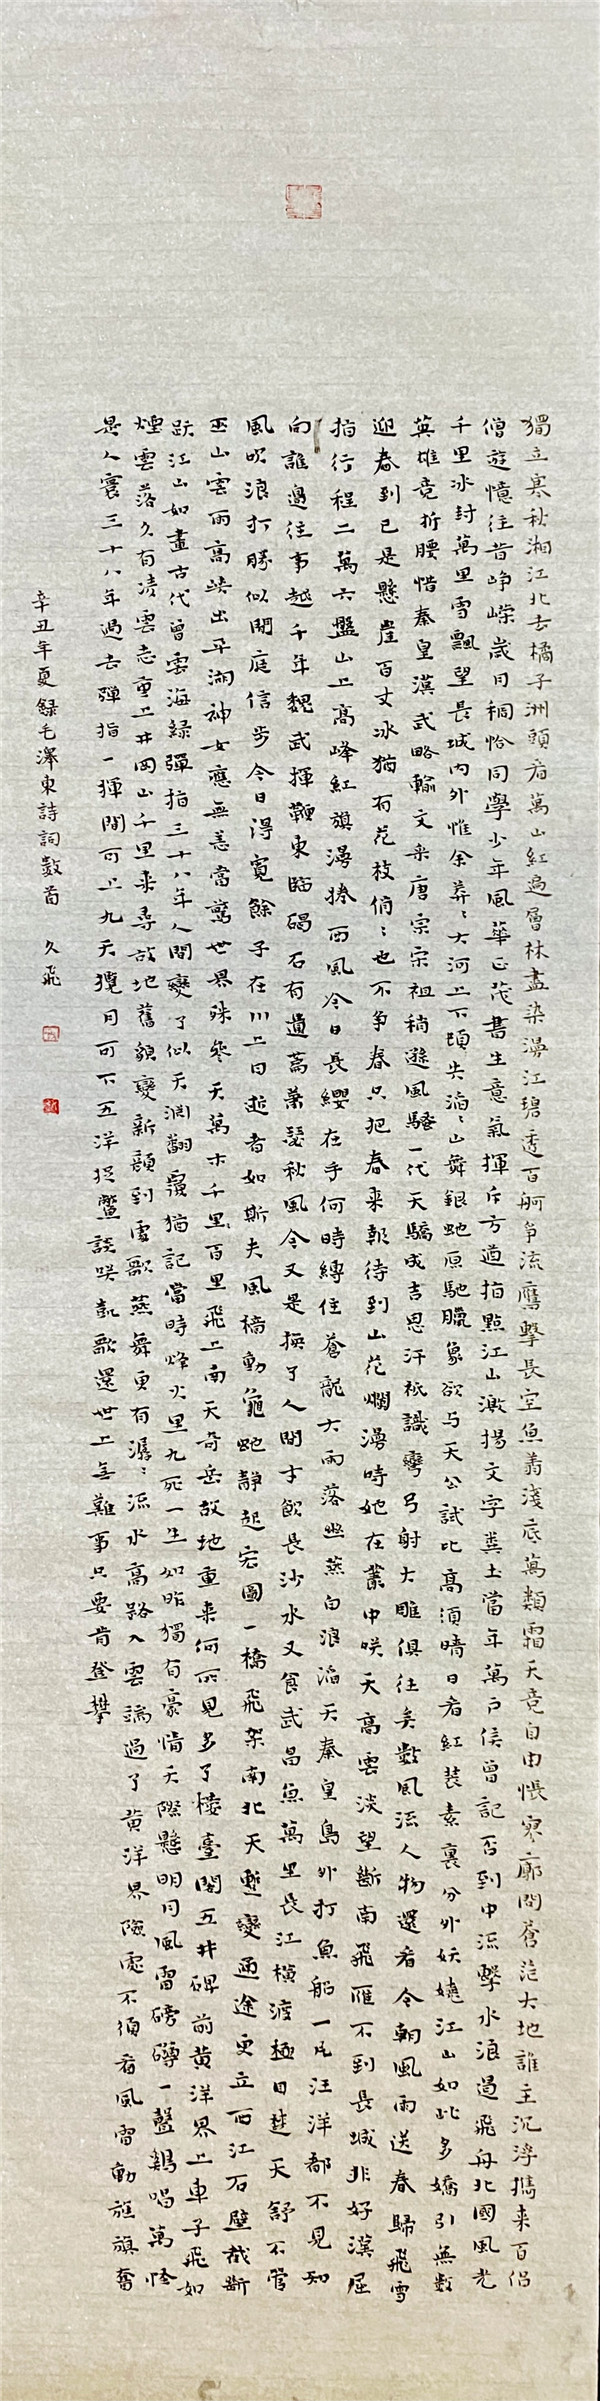 獨立寒秋湘江北去橘子洲頭看萬山紅遍層林盡染漫江碧透百舸爭流鷹擊長空魚翔淺底萬類霜天竟自由悵寥廓問蒼茫大地誰主沉浮攜來百侶
僧遊憶往昔崢嶸歲月稠恰同學少年風華正茂書生意氣揮斥方遒指點江山激揚文字糞土當年萬戶侯曾記否到中流擊水浪遏飛舟北國風光
千里冰封萬里雪飄望長城內外惟余莽〻大河上下頓失滔〻山舞銀蛇原馳臘象欲与天公試比高須晴日看紅裝素裹分外妖嬈江山如此多嬌引無數
英雄竟折腰惜秦皇漢武略輸文采唐宗宋祖稍遜風騷一代天驕成吉思汗祇識彎弓射大雕俱往矣數風流人物還看今朝風雨送春歸飛雪
迎春到已是懸崖百丈冰猶有花枝俏〻也不爭春只把春來報待到山花爛漫時她在叢中咲天高雲淡望斷南飛雁不到長城非好漢屈
指行程二萬六盤山上高峰紅旗漫捲西風今日長纓在手何時縛住蒼龍大雨落幽燕白浪滔天秦皇島外打魚船一片汪洋都不見知
向誰邊往事越千年魏武揮鞭東臨碣石有遺篇蕭瑟秋風今又是換了人間才飲長沙水又食武昌魚萬里長江橫渡極目楚天舒不管
風吹浪打勝似閑庭信步今日得寬餘子在川上曰逝者如斯夫風檣動龜蛇靜起宏圖一橋飛架南北天塹變通途更立西江石壁截斷
巫山雲雨高峽出平湖神女應無恙當驚世界殊參天萬木千里百里飛上南天奇岳故地重來何所見多了樓臺閣五井碑前黃洋界上車子飛如
躍江山如畫古代曾雲海綠彈指三十八年人間變了似天淵翻覆猶記當時烽火里九死一生如昨獨有豪情天際懸明月風雷磅礴一聲雞唱萬怪
煙雲落久有凌雲志重上井岡山千里來尋故地舊貌變新顏到處歌燕舞更有潺〻流水高路入雲端過了黃洋界險處不須看風雷動旌旗奮
是人寰三十八年過去彈指一揮間可上九天攬月可下五洋捉鱉談咲凱歌還世上無難事只要肯登攀
辛丑年夏錄毛澤東詩詞數首 久飛